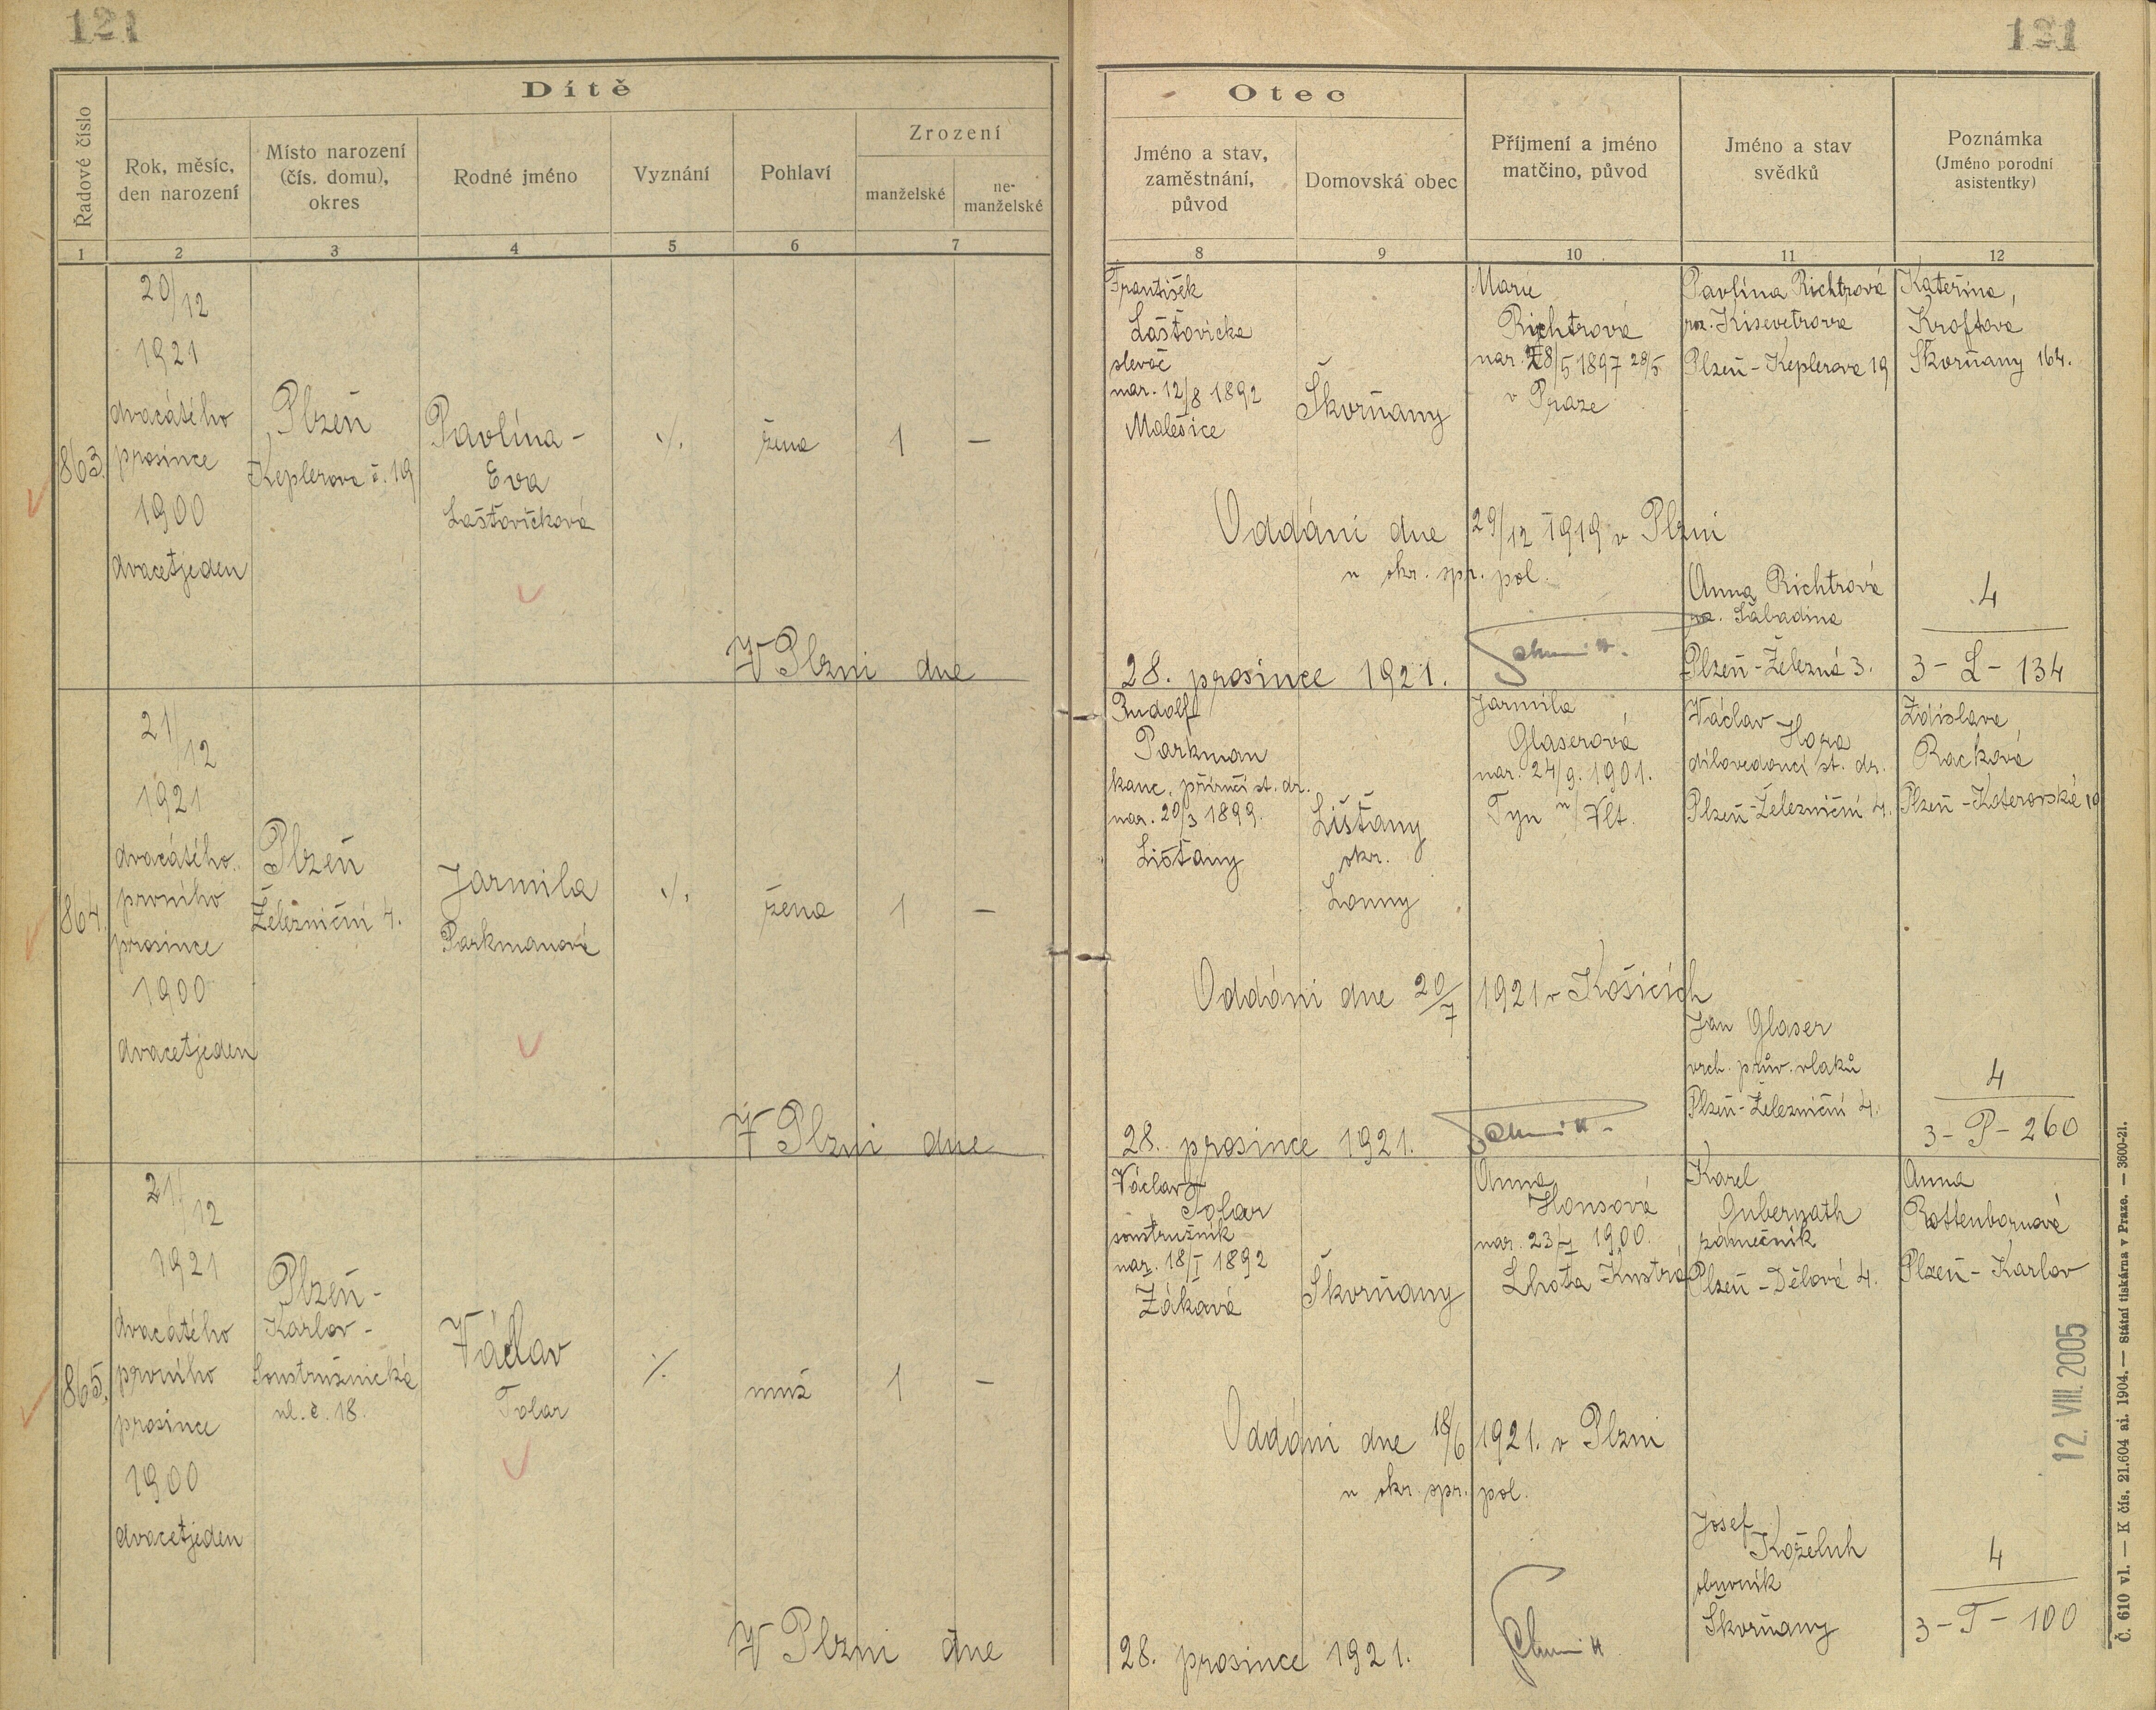 121
121
Dítě
Řadové číslo
Rok, měsíc,
den narození
Místo narození
(čís. domu),
okres
Rodné jméno
Vyznání
Pohlaví
Zrození
manželské
ne-
manželské
1
2
3
4
5
6
7
Otec
Jméno a stav,
zaměstnání,
původ
Domovská obec
Příjmení a jméno
matčino, původ
Jméno a stav
svědků
Poznámka
(Jméno porodní
asistentky)
8
9
10
11
12
863.
20/12
1921
dvacátého
prosince
1900
dvacetjeden
Plzeň
Keplerova č. 19
Pavlína -
Eva
Lašťovičková
·/.
žena
1
—
V Plzni dne
František
Lašťovička
slevač
nar. 12/8 1892
Malesice
Škvrňany
Marie
Richtrová
nar. 28/5 1897 28/5
v Praze
Pavlína Richtrová
roz. Kisevetrova
Plzeň - Keplerova 19
Kateřina,
Kroftova
Škvrňany 164.
Oddáni dne 29/12 1919 v Plzni
u okr. spr. pol.
Anna Richtrová
Plzeň - Železná 3.
4
3 - L - 134
28. prosince 1921.
864.
21/12
1921
dvacátého
prvního
prosince
1900
dvacetjeden
Plzeň
Železniční 4.
Jarmila
Parkmanová
·/.
žena
1
—
V Plzni dne
Rudolf
Parkman
kanc. příručí st. dr.
nar. 20/3 1899.
Lišťany
Lišťany
okr.
Louny
Jarmila
Glaserová
nar. 24/9. 1901.
Tyn n/Vlt.
Václav
Hora
dílovedoucí st. dr.
Plzeň - Železniční 4.
Zdislava
Racková
Plzeň - Koterovská 19
Oddáni dne 20/7 1921 v Košicích
Jan Glaser
vrch. prův. vlaků
Plzeň - Železniční 4.
4
3 - P - 260
28. prosince 1921.
865.
21/12
1921
dvacátého
prvního
prosince
1900
dvacetjeden
Plzeň -
Karlov -
Soustružnická
ul. č. 18.
Václav
Tolar
·/.
muž
1
—
V Plzni dne
Václav
Tolar
soustružník
nar. 18/I 1892
Žákavá
Škvrňany
Anna
Honsová
nar. 23/I 1900.
Lhota
Karel
Gubernath
zámečník
Plzeň - Dělová 4.
Anna
Rottenbornová
Plzeň - Karlov
Oddáni dne 18/6 1921. v Plzni
u okr. spr. pol.
Josef
Koželuh
obuvník
Škvrňany
4
3 - T - 100
28. prosince 1921.
12. VIII. 2005
Č. 610 vl. — K čís. 21.604 ai. 1904. — Státní tiskárna v Praze. — 3600-21.